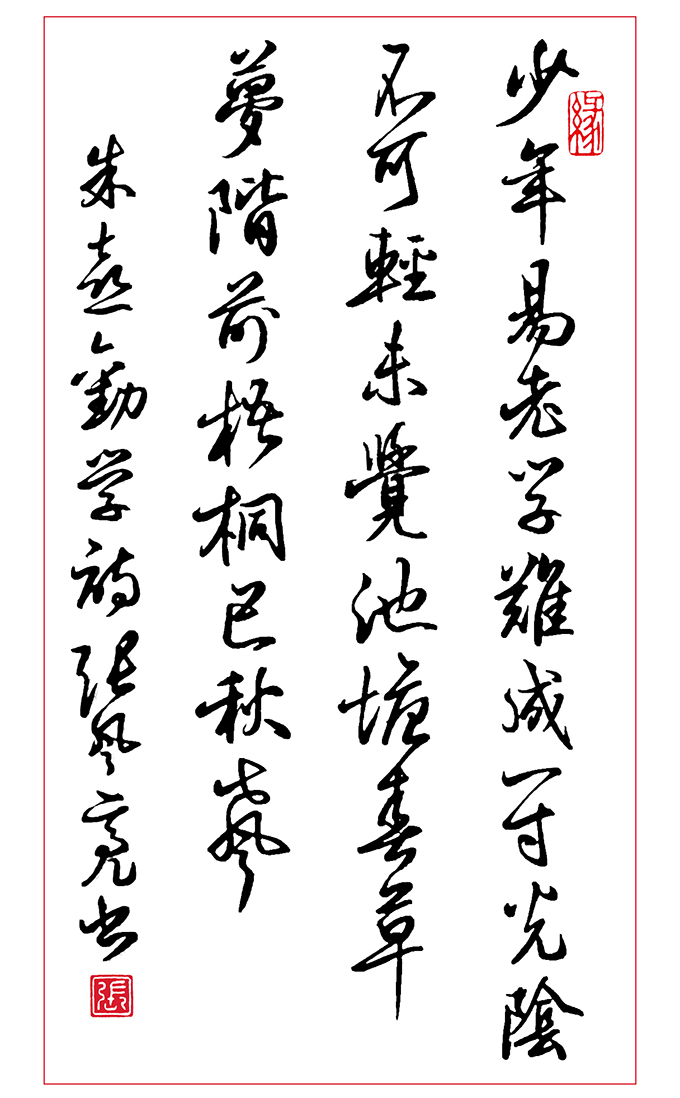 緣
少年易老学難成一寸光陰
不可輕未覺池塘春草
夢階前梧桐已秋聲
朱熹勤学詩張亮书
張